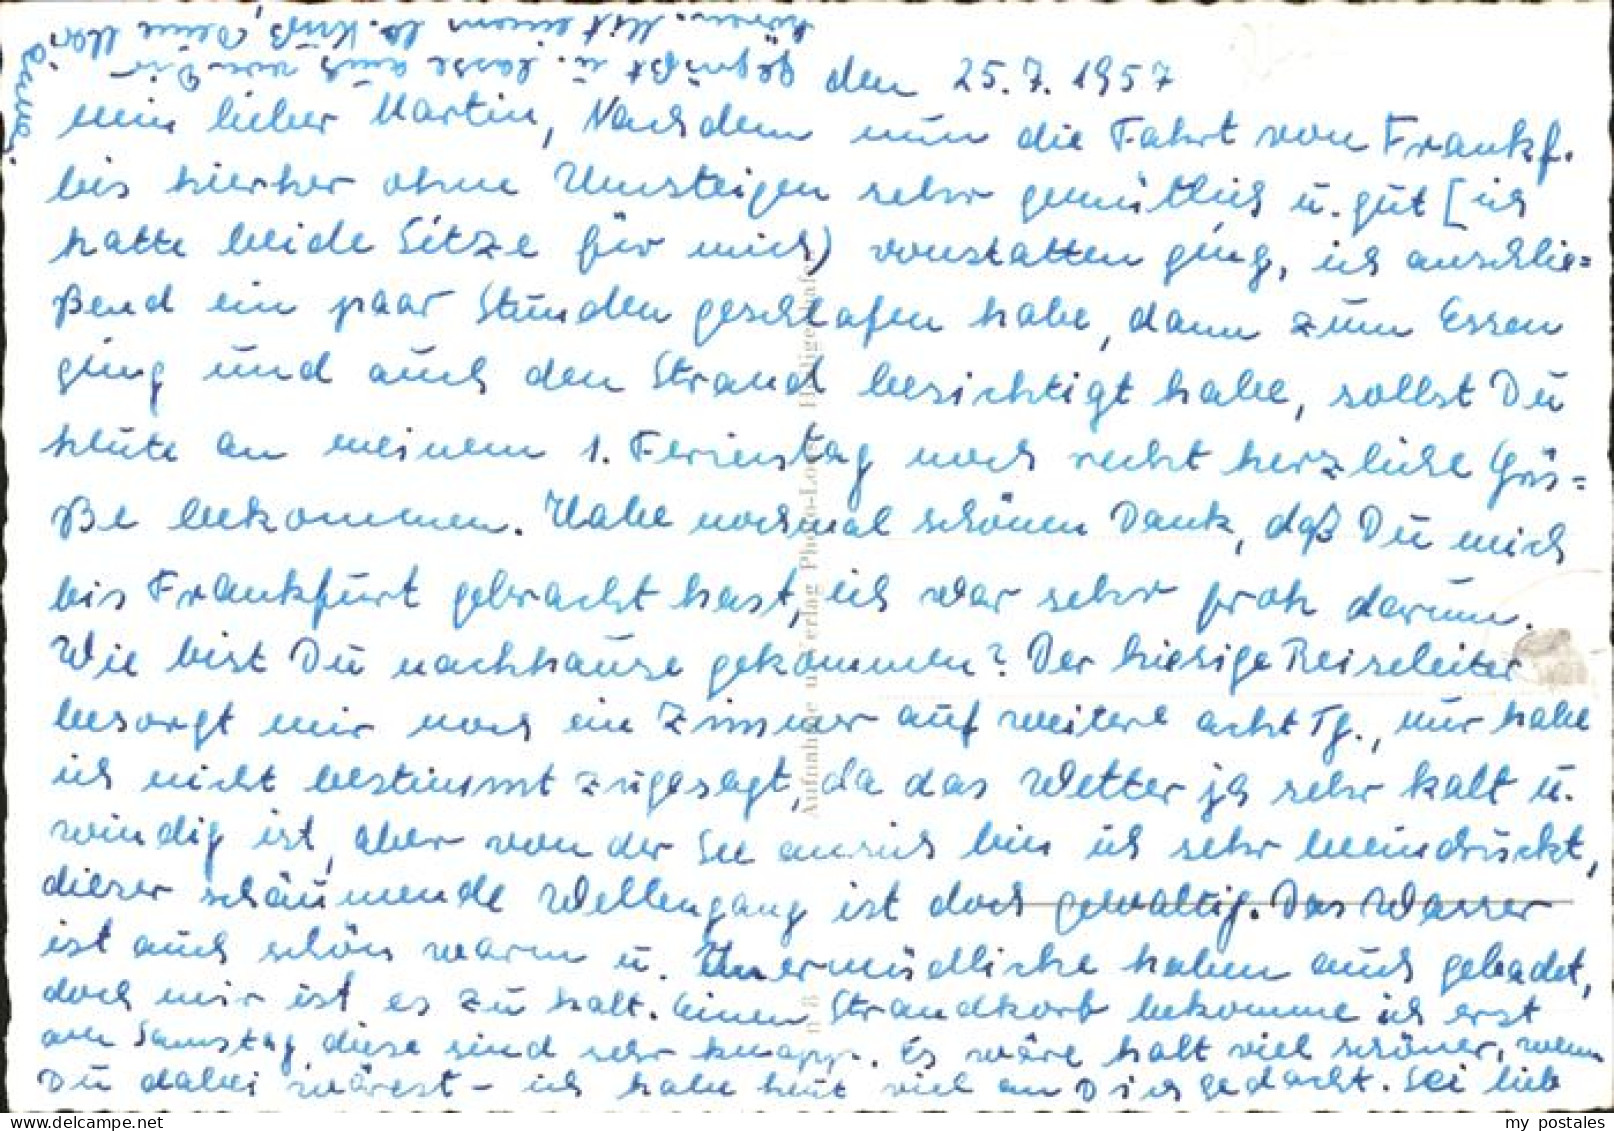 den 25.7.1957
mein lieber Martin, Nachdem nun die Fahrt von Frankf.
bis hierher ohne Umsteigen sehr gemütlich u. gut [ich
hatte beide Sitze für mich) vonstatten ging, ich anschlie=
ßend ein paar Stunden geschlafen habe, dann zum Essen
ging und auch den Strand besichtigt habe, sollst Du
heute an meinem 1. Ferienstag noch recht herzliche Grü=
ße bekommen. Habe nochmal schönen Dank, daß Du mich
bis Frankfurt gebracht hast, ich war sehr froh darum.
Wie bist Du nachhause gekommen? Der hiesige Reiseleiter
besorgt mir noch ein Zimmer auf weitere acht Tg., nur habe
ich nicht bestimmt zugesagt, da das Wetter ja sehr kalt u.
windig ist, aber von der See an sich bin ich sehr beeindrückt,
dieser schäumende Wellengang ist doch gewaltig. Das Wasser
ist auch schön warm u. Unermüdliche haben auch gebadet,
doch mir ist es zu kalt. Einen Strandkorb bekomme ich erst
am Samstag, diese sind sehr knapp. Es wäre halt viel schöner, wenn
Du dabei wärest - ich habe heut viel an Dich gedacht. Sei lieb
gegrüßt u. lasse auch von Dir
hören. Mit einem lb. Kuß, Deine
Aufnahme u. Verlag Photo-
my postales